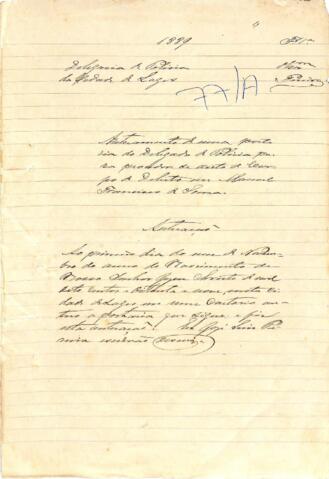 1889
Delegacia de Policia
da Cidade de Lages
77/A
Autuamento de uma porta
ria do Delegado de Policia pa
ra proceder de auto de Cor
po de Delicto em Manoel
Francisco de
Autuação
Ao primeiro dia do mez de Novem
bro do anno do Nascimento de
Nosso Senhor Jesus Christo de mil
oito centos e oitenta e nove, nesta Ci
dade de Lages, em meu Cartorio au
tuo a portaria que segue e fiz
esta autuação. Eu José Luis Pe
reira escrivão